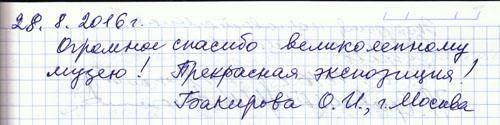 28. 8. 2016 г.
Огромное спасибо великолепному
музею! Прекрасная экспозиция!
Бакирова О.И., г. Москва